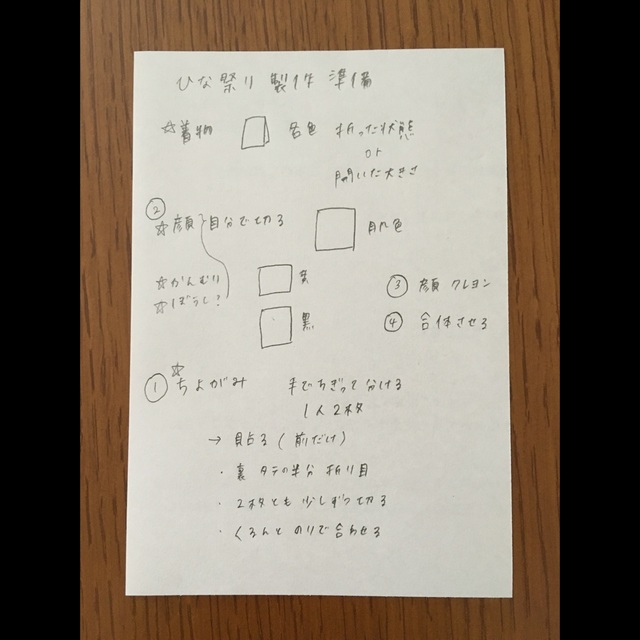 ひな祭り 製作 準備
☆着物 各色 折った状態
or
開いた大きさ
②
☆顔 自分で切る 肌色
☆かんむり 黄
☆ぼうし?
黒
③ 顔 クレヨン
④ 合体させる
① ☆ちよがみ 手でちぎって分ける
1人2枚
→ 貼る (前だけ)
・裏 タテの半分 折り目
・2枚とも 少しずつ切る
・くるんと のりで合わせる